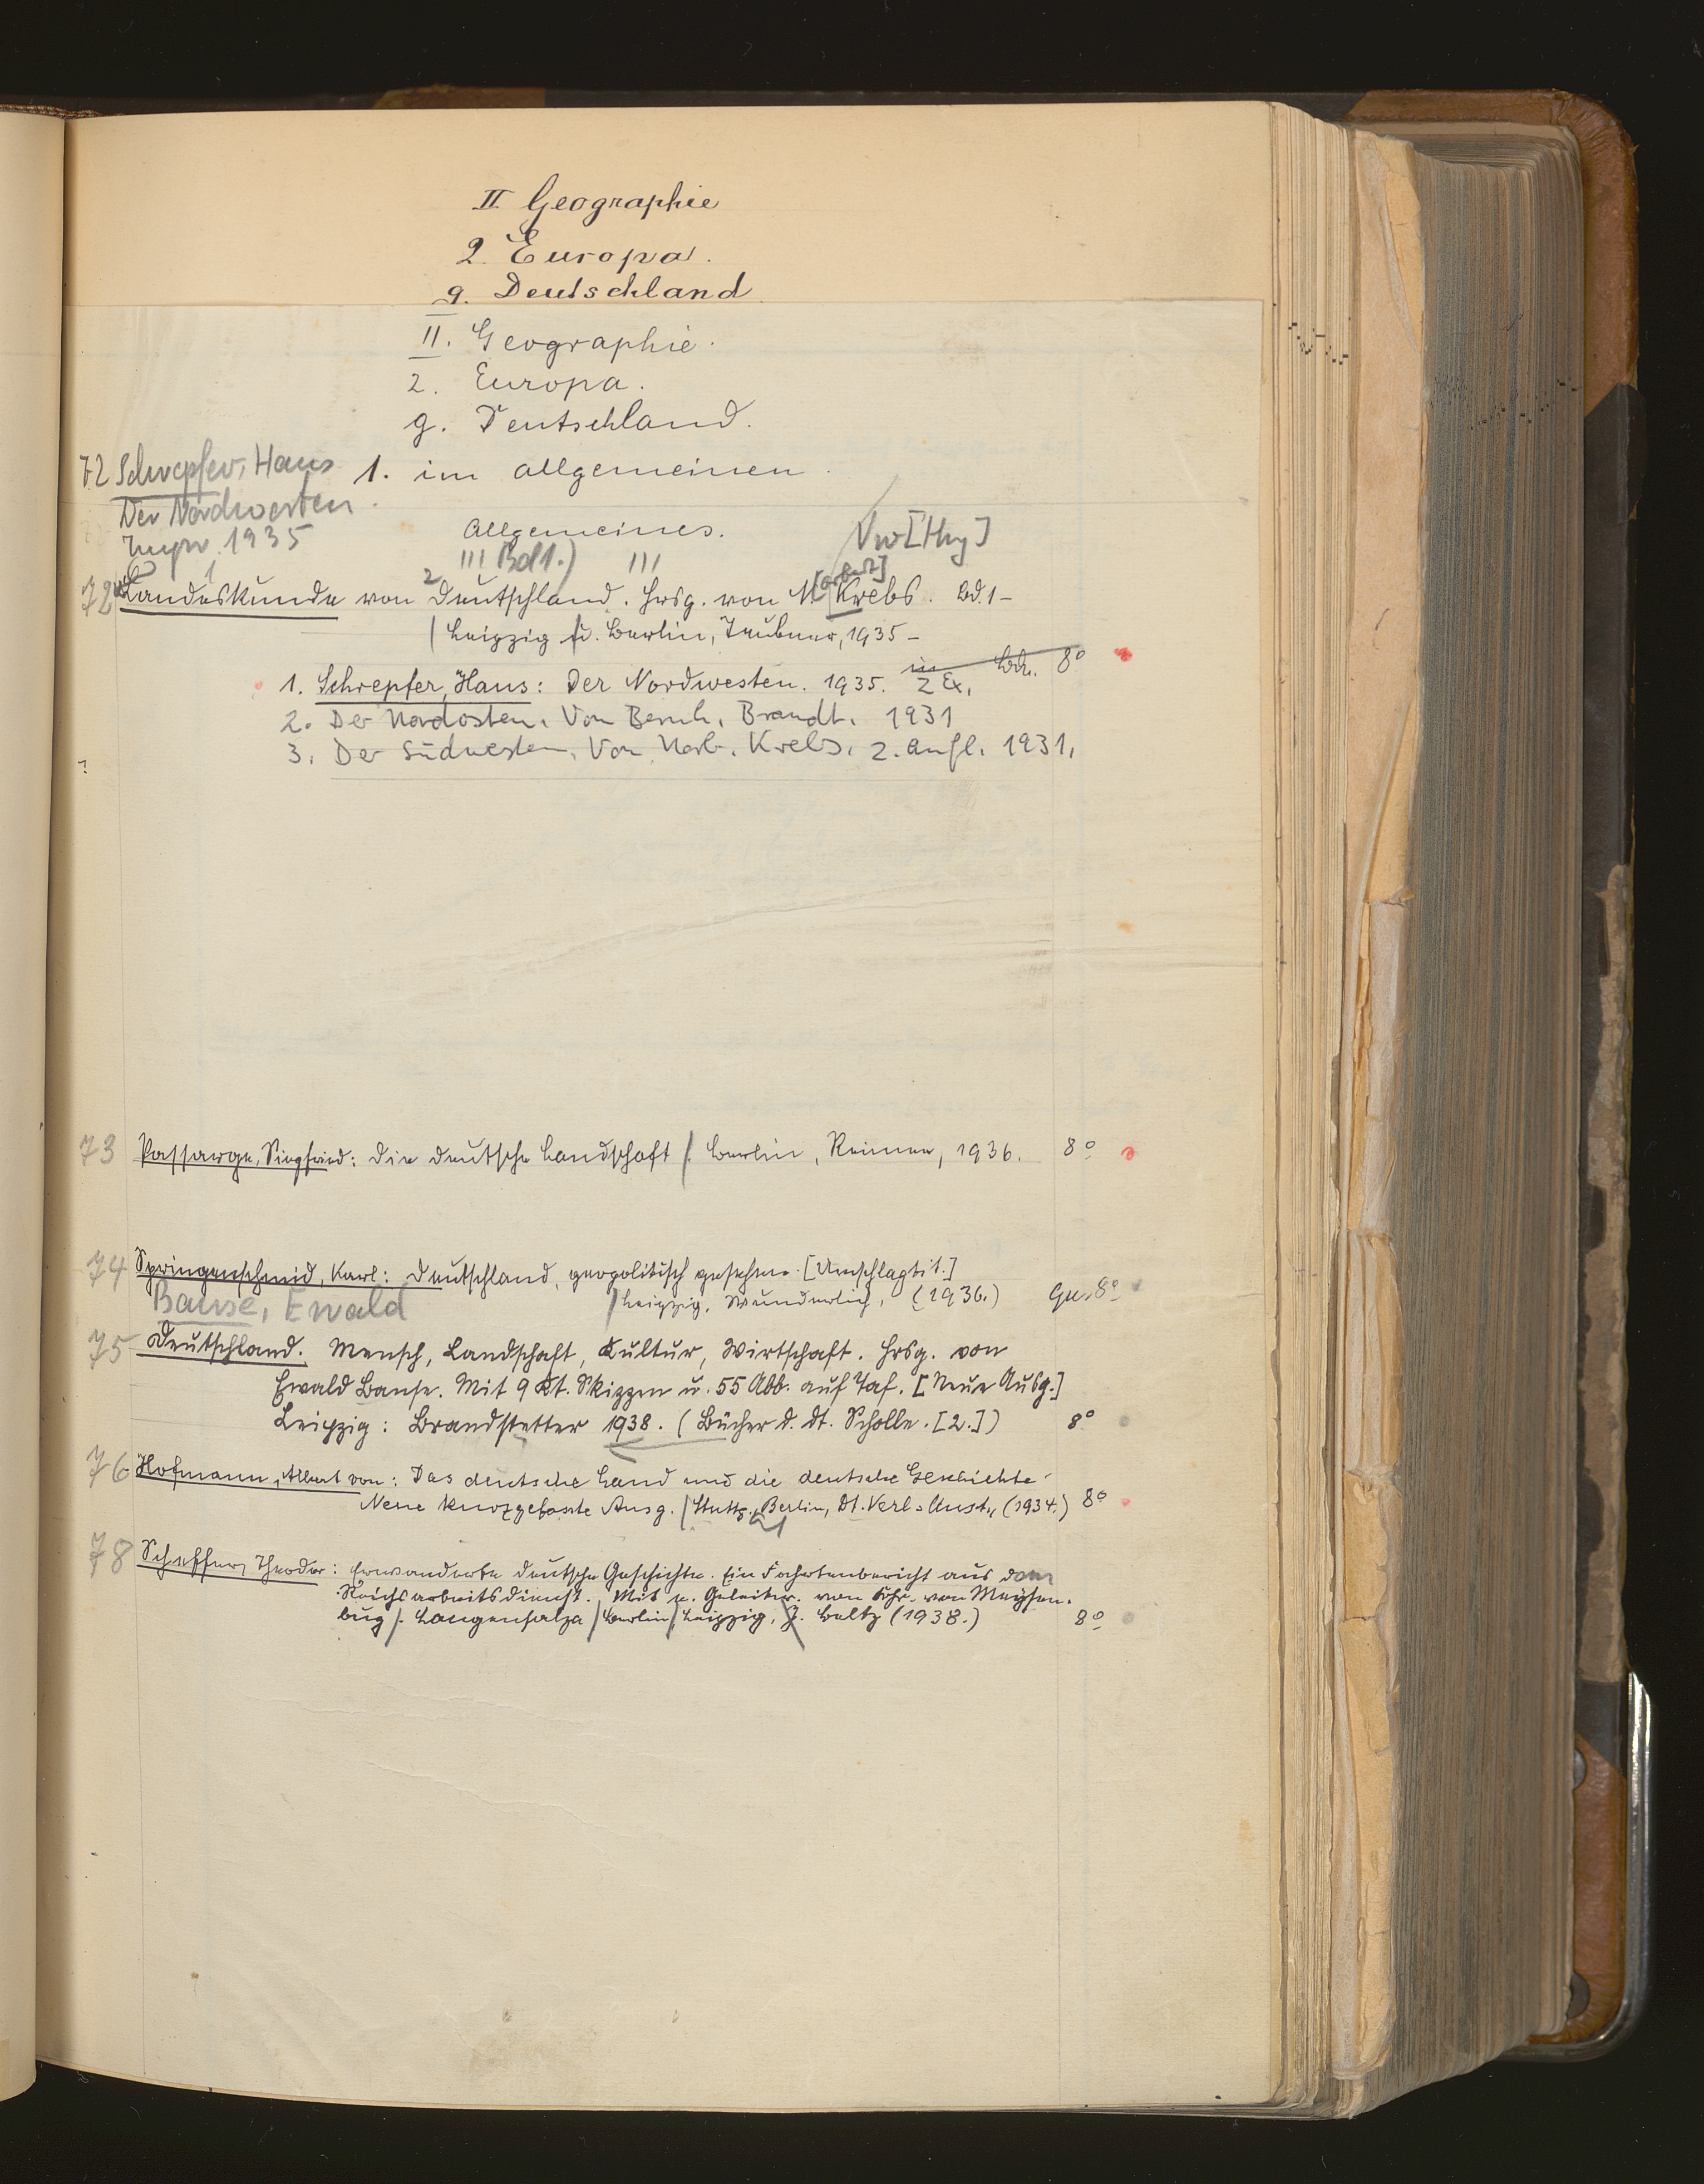 II Geographie
2. Europa.
g. Deutschland
II. Geographie.
2. Europa.
g. Deutschland.
1. im allgemeinen.
72 Schrepfer, Hans
Der Nordwesten
1935
Allgemeines.
III Bd 1.) III
72 Landeskunde von Deutschland. Hrsg. von N[orbert] Krebs. Bd. 1-
Leipzig u. Berlin, Teubner, 1935-
1. Schrepfer, Hans: Der Nordwesten. 1935. 2 Ex. 8°
2. Der Nordosten. Von Bernh. Brandt. 1931
3. Der Südwesten. Von Norb. Krebs. 2. Aufl. 1931.
73 Passarge, Siegfried: Die deutsche Landschaft. Berlin, Reimer, 1936. 8°
74 Springenschmid, Karl: Deutschland, geopolitisch gesehen. [Umschlagtit.]
Leipzig, Wunderlich, (1936.) Qu. 8°
Banse, Ewald
75 Deutschland. Mensch, Landschaft, Kultur, Wirtschaft. Hrsg. von
Ewald Banse. Mit 9 Kt. Skizzen u. 55 Abb. auf Taf. [Neue Ausg.]
Leipzig: Brandstetter 1938. (Bücher d. dt. Scholle. [2.]) 8°
76 Hofmann, Albert von: Das deutsche Land und die deutsche Geschichte.
Neue kurzgefasste Ausg. Stuttg., Berlin, Dt. Verl.-Anst., (1934.) 8°
78 Scheffer, Theodor: Erwanderte deutsche Geschichte. Ein Fahrtenbericht aus dem
Reichsarbeitsdienst. Mit e. Geleitw. von Frhr. von Meysen-
bug. Langensalza, Berlin, Leipzig, J. Beltz (1938.) 8°